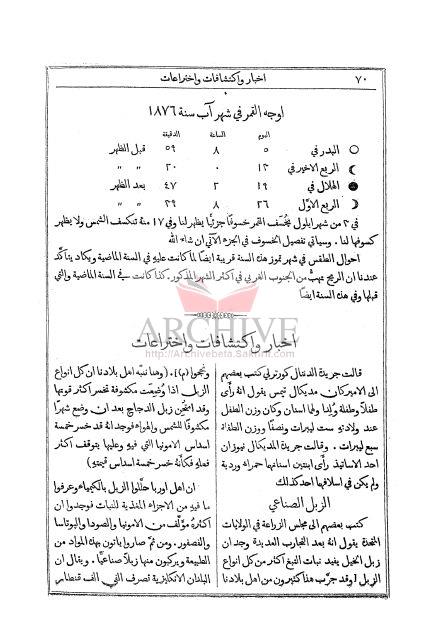 ٧٠ اخبار واكتشافات واختراعات
اوجه القمر في شهر آب سنة ١٨٧٦
اليوم الساعة الدقيقة
البدر في ٥ ٨ ٥٩ قبل الظهر
الربع الاخير في ١٢ ٠ ٢٠ " "
الهلال في ١٩ ٢ ٤٧ بعد الظهر
الربع الاوَّل ٢٦ ٨ ٢٩ " "
في ٣ من شهر ايلول يُخسَف القمر خسوفًا جزئيًّا يظهر لنا وفي ١٧ منهُ تنكسف الشمس ولا يظهر
كسوفها لنا. وسياتي تفصيل الخسوف في الجزء الآتي ان شاء الله
احوال الطقس في شهر تموز هذه السنة قريبة ايضًا لما كانت عليهِ في السنة الماضية ويكاد يتأكد
عندنا ان الريح تهبُّ من الجنوب الغربي في أكثر الشهر المذكور. كذا كانت في السنة الماضية والتي
قبلها وفي هذه السنة ايضًا
ARCHIVE
http://Archivebeta.Sakhrit.com
اخبار واكتشافات واختراعات
قالت جريدة الدنتال كوزترلي كتب بعضهم
الى الاميركان مديكال تيمس يقول انهُ رأى
طفلًا وطفلة وُلِدا ولهما اسنان وكان وزن الطفل
عند ولادتهِ ست ليبرات ونصفًا ووزن الطفلة
سبع ليبرات. وقالت جريدة المديكال نيوز ان
احد الاساتيذ رأى ابنتين اسنانهما حمراء وردية
ولم يكن في اسلافها احد كذلك
الزبل الصناعي
كتب بعضهم الى مجلس الزراعة في الولايات
المتحدة يقول انهُ بعد التجارب العديدة وجد ان
زبل الخيل يفيد نبات التبغ أكثر من كل انواع
الزبل [وقد جرَّب هذا كثيرون من اهل بلادنا
ونجحوا (م)]. (وهنا ننبّه اهل بلادنا ان كل انواع
الزبل اذا وُضِعت مكشوفة تخسر أكثر قوتها
وقد امتُحن زبل الدجاج بعد ان وضع شهرًا
مكشوفًا للشمس والهواء فوجد انهُ قد خسر خمسة
اسداس الامونيا التي فيهِ وعليها يتوقف أكثر
فعلهِ فكأنهُ خسر خمسة اسداس قيمتهِ)
ان اهل اوربا حلَّلوا الزبل بالكيمياء وعرفوا
ما فيهِ من الاجزاء المغذية للنبات فوجدوا ان
أكثرهُ مؤلَّف من الامونيا والصودا والبوتاسا
والفصفور. ومن ثمَّ صاروا يأتون بهذه المواد من
الطبيعة ويركبون منها زبلًا صناعيًّا. ويقال ان
البلدان الانكليزية تصرف الف قنطار